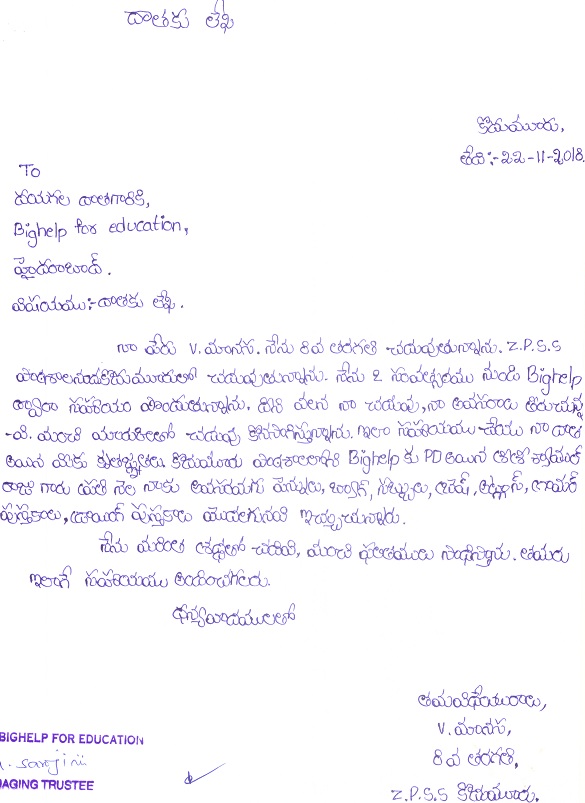 దాతకు లేఖ
కొమమూరు,
తేది:-22-11-2018.
To
దయగల దాతగారికి,
Bighelp for education,
హైదరాబాద్.
విషయము:-దాతకు లేఖ.
నా పేరు V.మానస. నేను 8వ తరగతి చదువుతున్నాను. Z.P.S.S
చదువుతున్నాను. నేను 2 సంవత్సరము నుండి Bighelp
ద్వారా సహాయం పొందుతున్నాను. దీని వలన నా చదువు, నా అవసరాలు తీరుచున్న
-వి. మంచి మార్కులతో చదువు కొనసాగిస్తున్నాను. ఇలా సహాయము చేయు నా దాత
అయిన మీకు కృతజ్ఞతలు. కొమమూరు పాఠశాలలోని Bighelp కు PD అయిన
రాజు గారు ప్రతి నెల నాకు అవసరమగు పెన్నులు, బ్యాగ్, సబ్బులు, బ్రష్, అట్లాస్, గ్రామర్
పుస్తకాలు, డ్రాయింగ్ పుస్తకాలు మొదలగునవి ఇచ్చుచున్నారు.
నేను మరింత శ్రద్ధతో చదివి, మంచి ఫలితములు సాధిస్తాను. తమరు
ఇలాగే సహాయము అందించగలరు.
ధన్యవాదములతో
తమవిధేయురాలు,
V.మానస,
8వ తరగతి,
Z.P.S.S కొమమూరు.
BIGHELP FOR EDUCATION
sarojini
AGING TRUSTEE